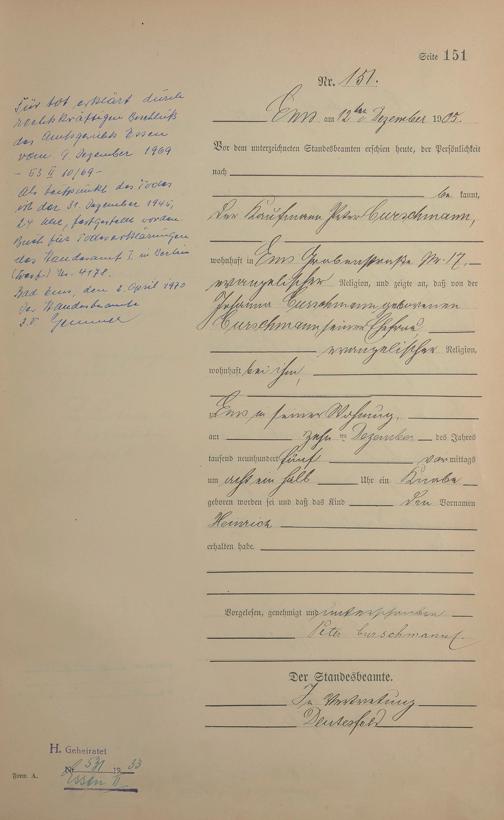 Seite 151
Nr. 151.
Ems am 12ten Dezember 1905.
Vor dem unterzeichneten Standesbeamten erschien heute, der Persönlichkeit
nach
be kannt,
der Kaufmann Peter Curschmann,
wohnhaft in Ems Grabenstraße Nr. 17,
evangelischer Religion, und zeigte an, daß von der
Johanna Curschmann geborenen
Curschmann, seiner Ehefrau,
evangelischer Religion,
wohnhaft bei ihm,
Ems in seiner Wohnung,
am zehnten Dezember des Jahres
tausend neunhundert fünf vor mittags
um acht ein halb Uhr ein Knabe
geboren worden sei und daß das Kind den Vornamen
Heinrich
erhalten habe.
Vorgelesen, genehmigt und unterschrieben
Peter Curschmann
Der Standesbeamte.
In Vertretung
Für tot erklärt durch
rechtskräftigen Beschluß
des Amtsgerichts Essen
vom 9. Dezember 1969
- 63 II 10/69 -
Als Zeitpunkt des Todes
ist der 31. Dezember 1945,
24 Uhr, festgestellt worden
Buch für Todeserklärungen
des Standesamt I in Berlin
(West) Nr. 4178.
Bad Ems, den 6. April 1970
Der Standesbeamte
H. Geheiratet
Nr 531 1933
Essen
Form. A.